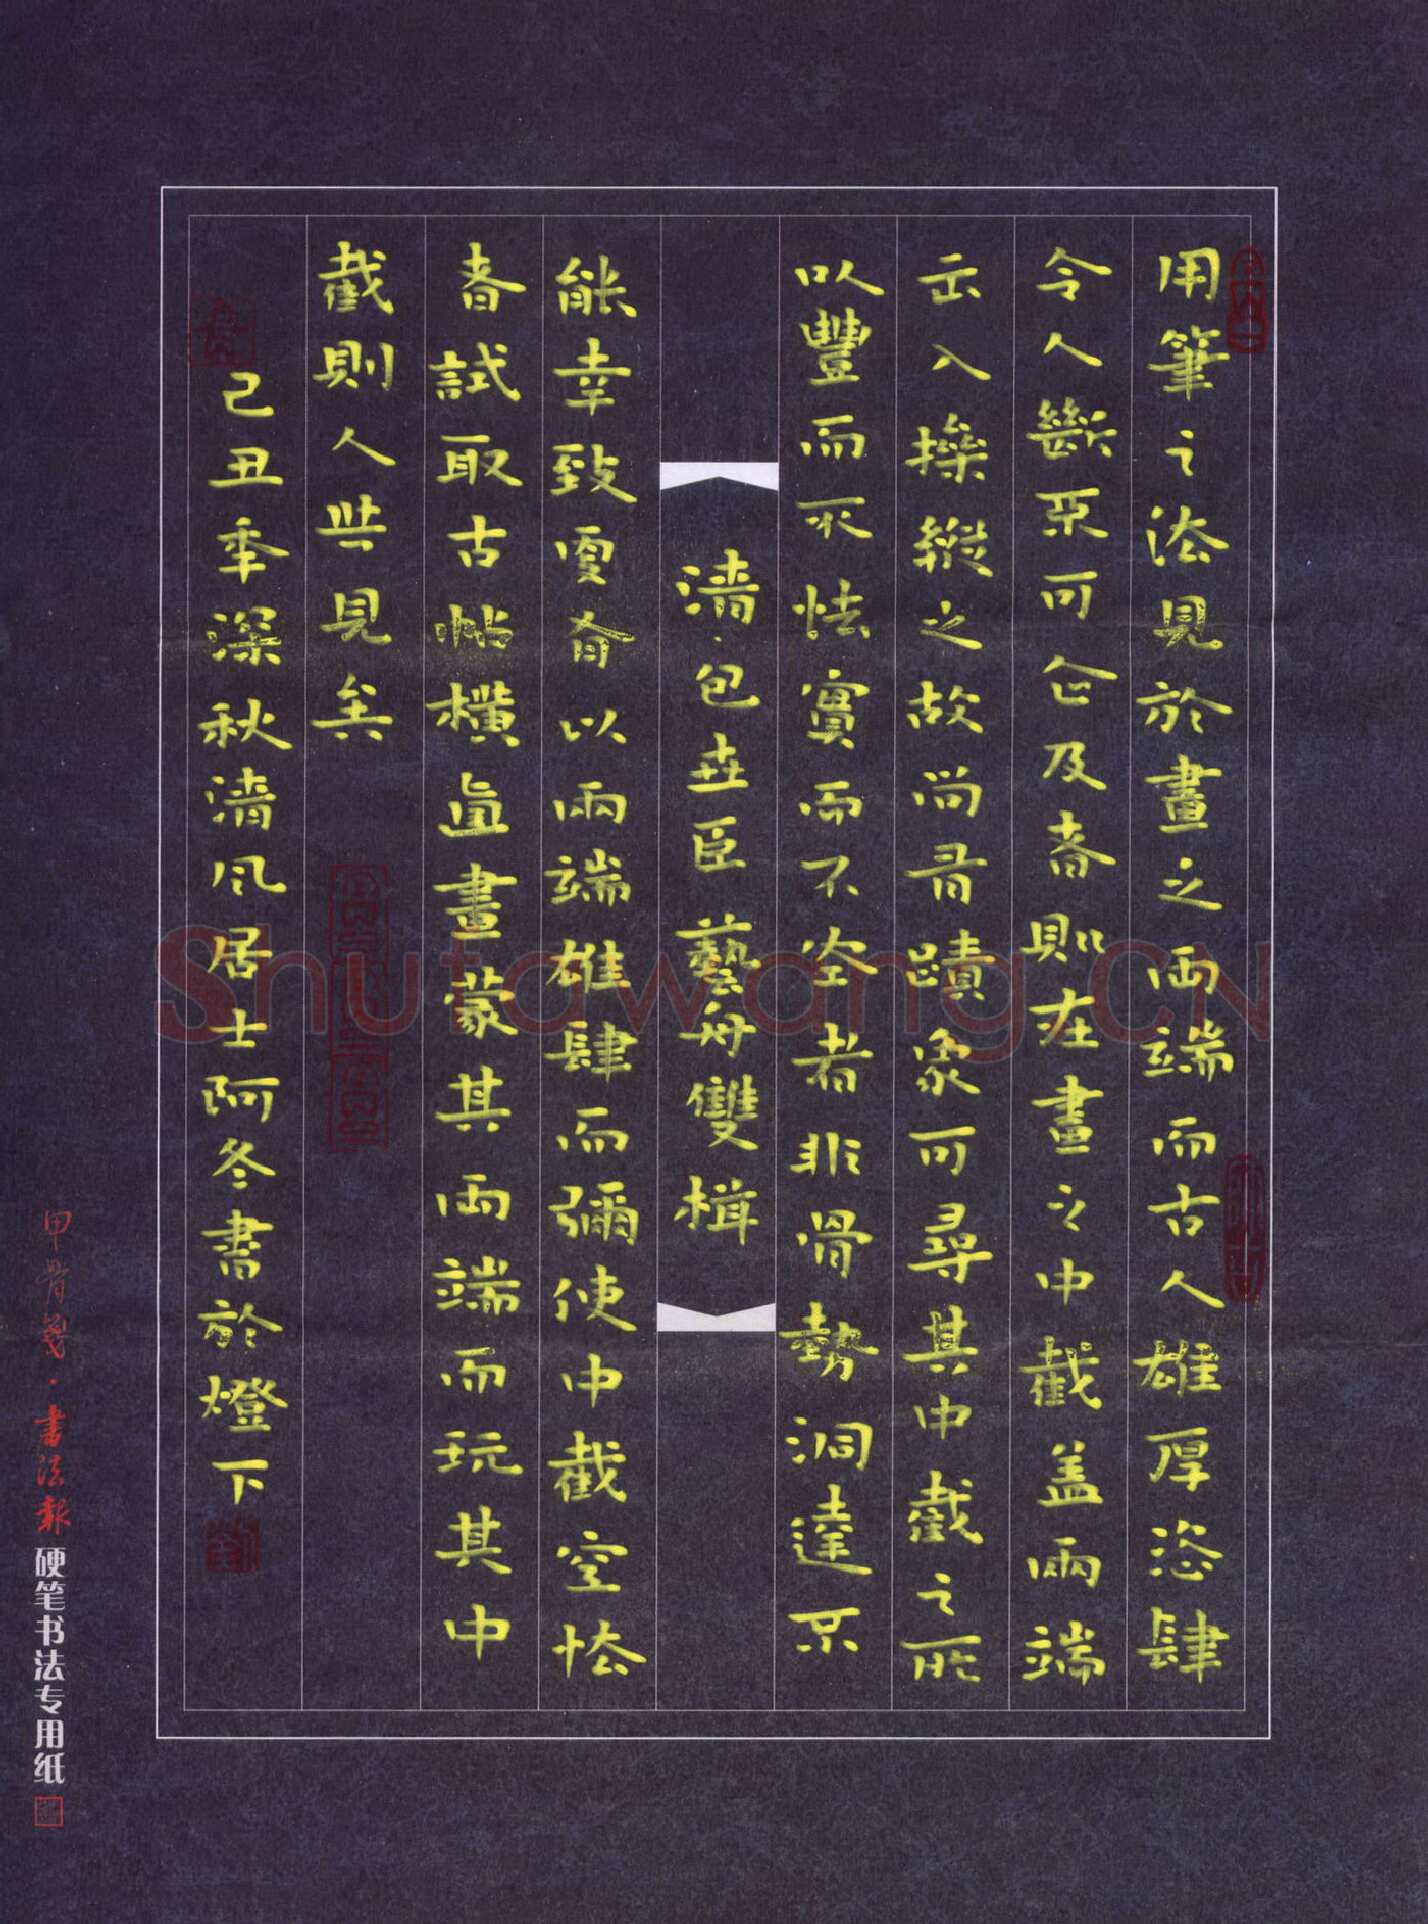 用筆之法見於畫之兩端而古人雄厚恣肆
令人斷不可企及者則在畫之中截蓋兩端
出入操縱之故尚有蹟象可尋其中截之所
以豐而不怯實而不空者非骨勢洞達不
清·包世臣 藝舟雙楫
能幸致更有以兩端雄肆而彌使中截空怯
者試取古帖橫直畫蒙其兩端而玩其中
截則人共見矣
己丑季深秋清风居士阿冬書於燈下
甲骨笺·書法報硬笔书法专用纸
Shufawang.CN